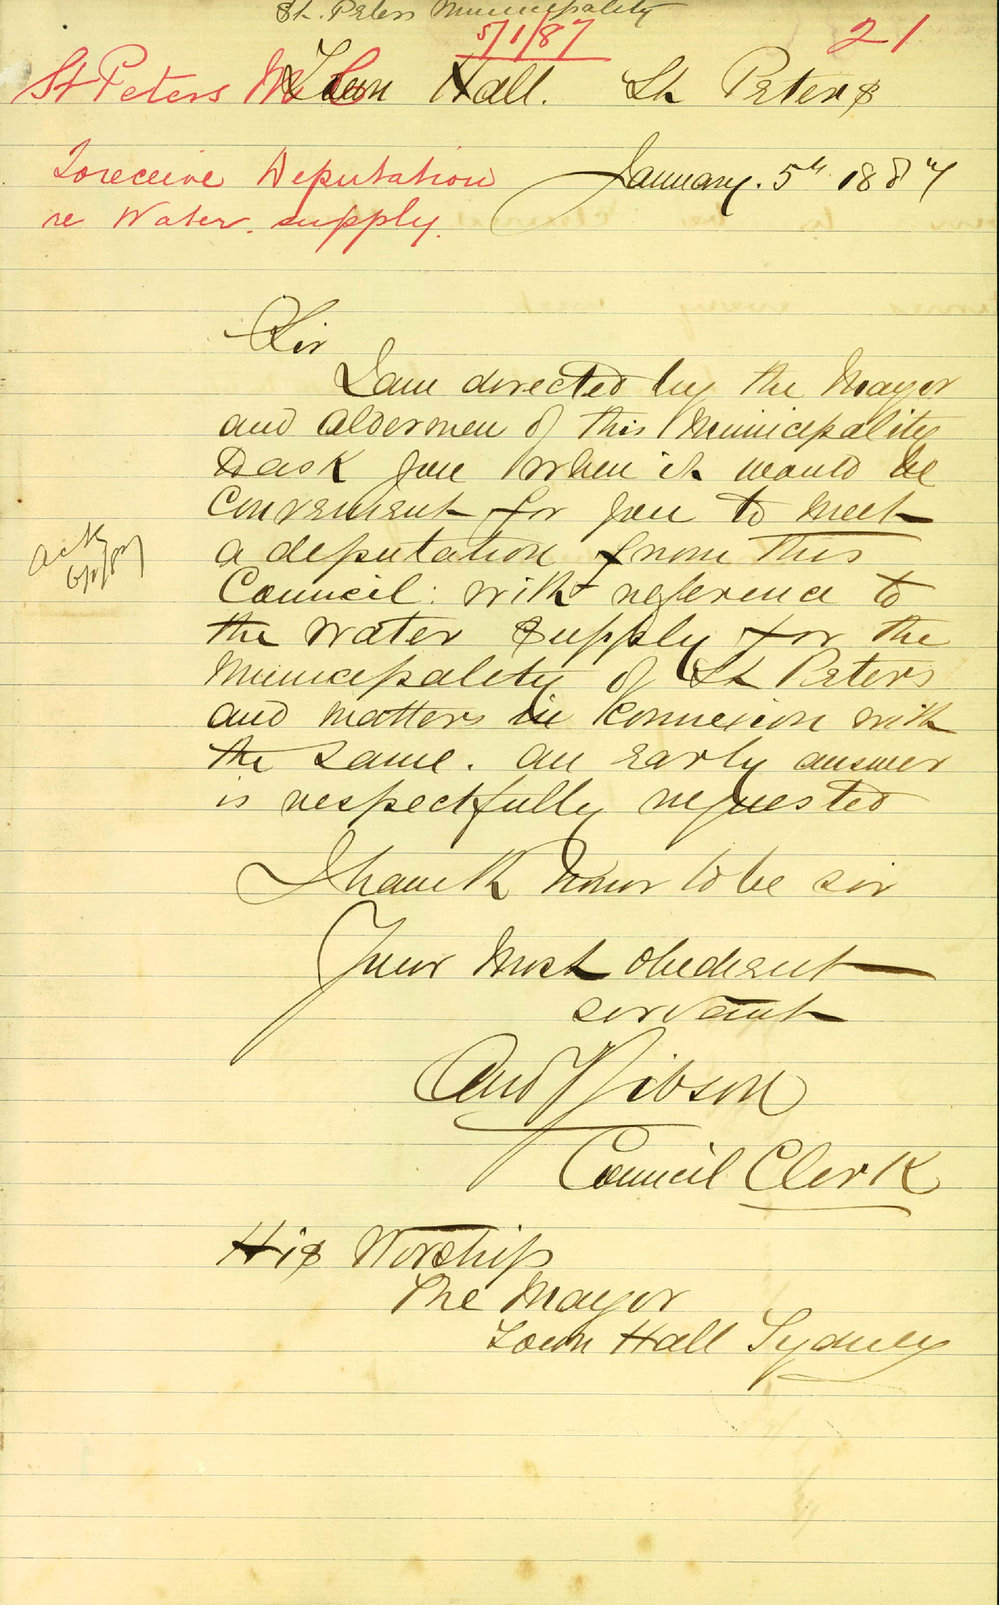 St. Peters Municipality
5/1/87
21
St Peters M. C.
Town Hall. St Peters
To receive Deputation
re Water. supply.
January. 5th 1887
Sir
I am directed by the Mayor
and Aldermen of this Municipality
to ask you when it would be
convenient for you to meet
a deputation from this
Council: with reference to
the Water Supply for the
Municipality of St Peters
and matters in Connexion with
the same. An Early answer
is respectfully requested
ack
6/1/87
I have the honor to be sir
Your Most obedient
servant
And Gibson
Council Clerk
His Worship
The Mayor
Town Hall Sydney